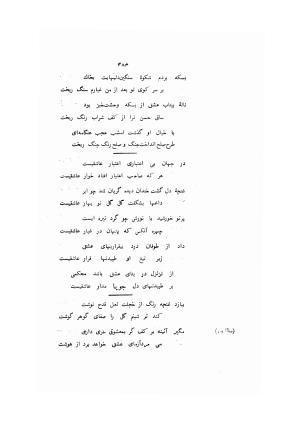 ۳۸۶
بسکه بردم شکوهٔ سنگین‌دلیهایت بخاک
بر سر کوی تو بعد از من غبارم سنگ ریخت
نالهٔ بیتاب عشق از بسکه وحشت‌خیز بود
ساقی حسن ترا از کف شراب رنگ ریخت
با خیال او گذشت امشب عجب هنگامه‌ای
طرح صلح انداخت جنگ و صلح رنگ جنگ ریخت
در جهان بی اعتباری اعتبار عاشقیست
هر که صاحب اعتبار افتاد خوار عاشقیست
غنچهٔ دل گشت خندان دیده گریان شد چو ابر
داغها بشکفت گل گل نو بهار عاشقیست
پرتو خورشید با نورش چو گرد تیره ایست
چهره آنکس که پنهان در غبار عاشقیست
داد از طوفان درد بیقراریهای عشق
زیر تیغ او طپیدنها قرار عاشقیست
از تزلزل در بنای عشق باشد محکمی
بر طپیدنهای دل جویا مدار عاشقیست
بیازد غنچه رنگ از خجلت لعل قدح نوشت
کند تر شبنم گل را صفای گوهر گوشت
مگیر آئینه بر کف گر بمعشوقی سری داری
می دیدارهای عشق خواهد برد از هوشت